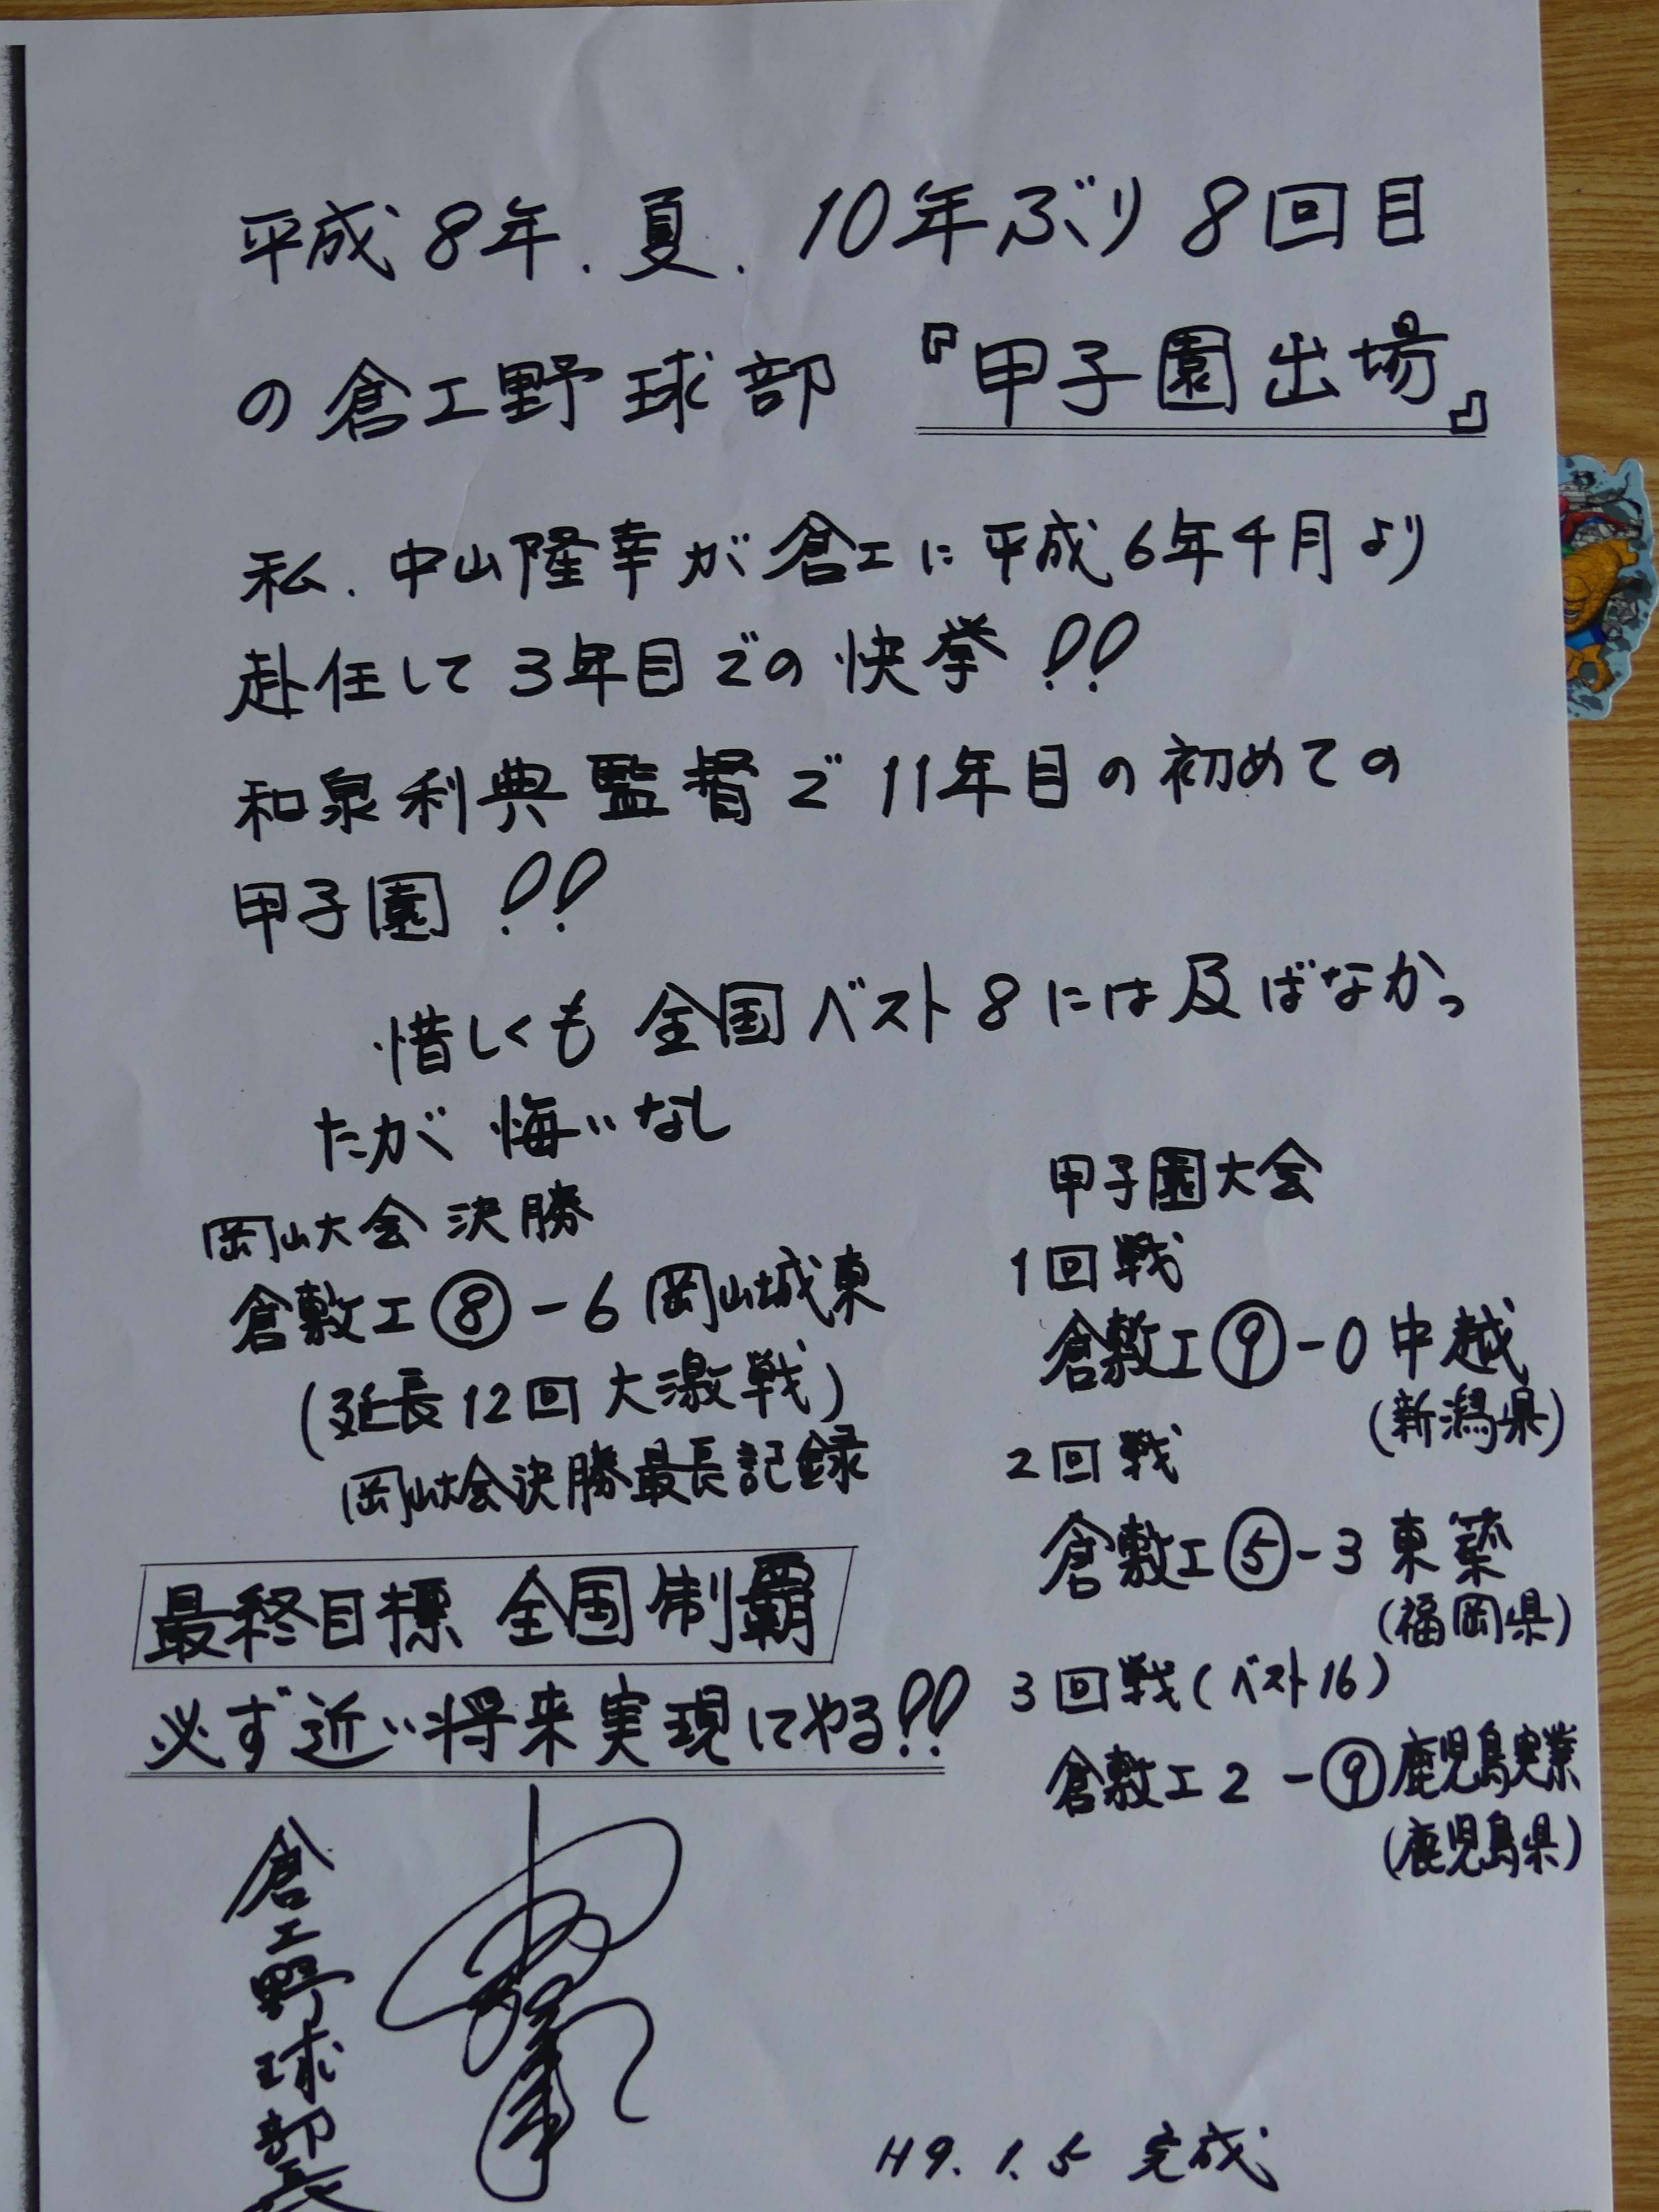 平成8年.夏. 10年ぶり8回目
の倉工野球部 『甲子園出場』
私.中山隆幸が倉工に平成6年4月より
赴任して3年目での快挙!!
和泉利典監督で11年目の初めての
甲子園!!
惜しくも全国ベスト8には及ばなかっ
たが悔いなし
岡山大会決勝
倉敷工⑧-6岡山城東
(延長12回大激戦)
岡山大会決勝最長記録
最終目標 全国制覇
必ず近い将来実現にやる!!
甲子園大会
1回戦
倉敷工⑨-0中越
(新潟県)
2回戦
倉敷工⑤-3東築
(福岡県)
3回戦(ベスト16)
倉敷工2-⑨鹿児島実業
(鹿児島県)
倉工野球部長
H9.1.5 完成